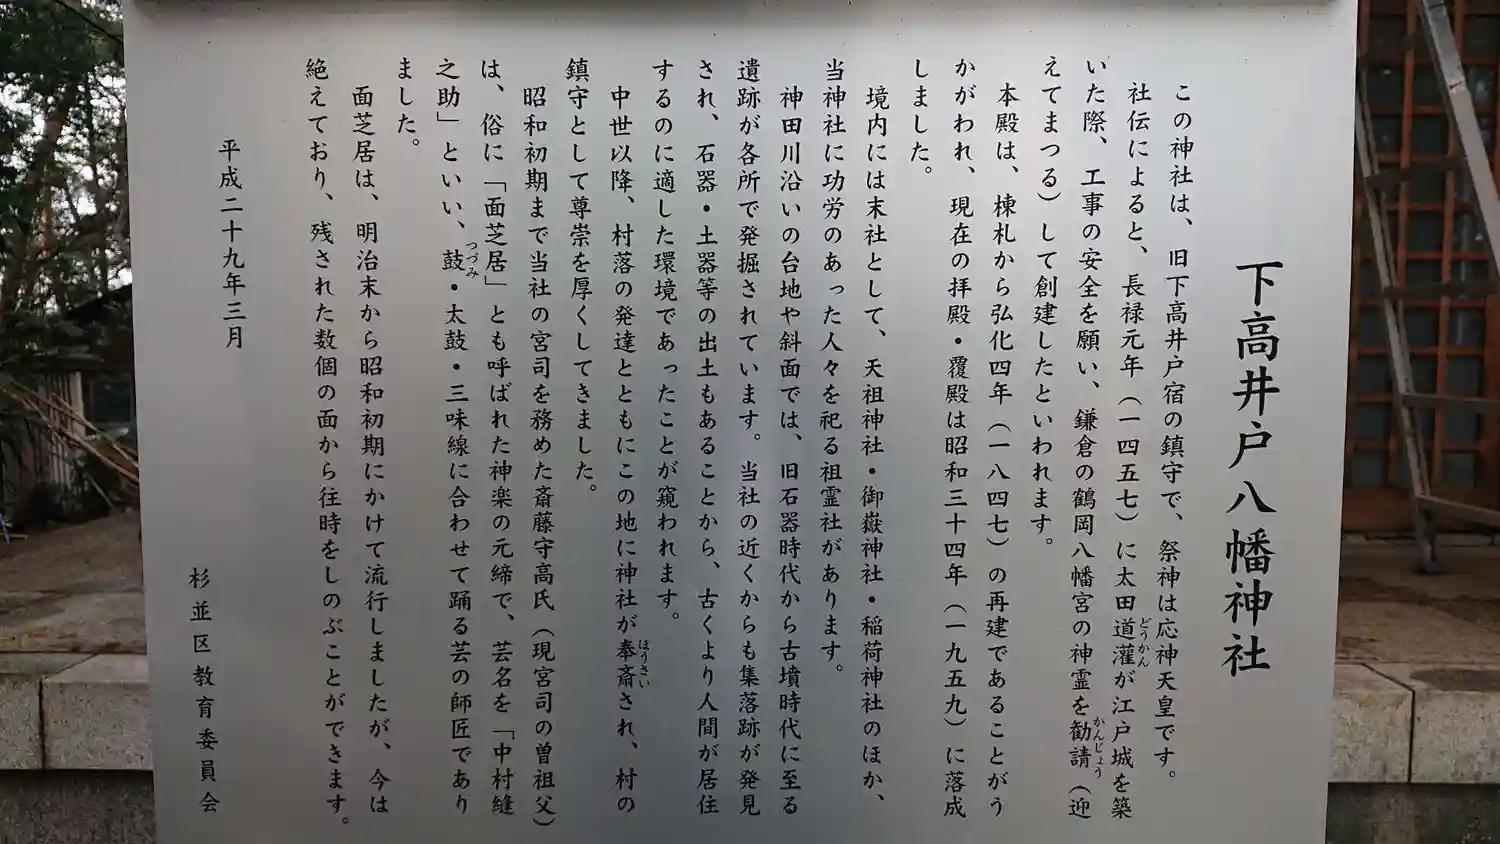 下高井戸八幡神社
この神社は、旧下高井戸宿の鎮守で、祭神は応神天皇です。
社伝によると、長禄元年（一四五七）に太田道灌どうかんが江戸城を築
いた際、工事の安全を願い、鎌倉の鶴岡八幡宮の神霊を勧請かんじょう（迎
えてまつる）して創建したといわれます。
本殿は、棟札から弘化四年（一八四七）の再建であることがう
かがわれ、現在の拝殿・覆殿は昭和三十四年（一九五九）に落成
しました。
境内には末社として、天祖神社・御嶽神社・稲荷神社のほか、
当神社に功労のあった人々を祀る祖霊社があります。
神田川沿いの台地や斜面では、旧石器時代から古墳時代に至る
遺跡が各所で発掘されています。当社の近くからも集落跡が発見
され、石器・土器等の出土もあることから、古くより人間が居住
するのに適した環境であったことが窺われます。
中世以降、村落の発達とともにこの地に神社が奉斎ほうさいされ、村の
鎮守として尊崇を厚くしてきました。
昭和初期まで当社の宮司を務めた斎藤守高氏（現宮司の曽祖父）
は、俗に「面芝居」とも呼ばれた神楽の元締で、芸名を「中村縫
之助」といい、鼓つづみ・太鼓・三味線に合わせて踊る芸の師匠であり
ました。
面芝居は、明治末から昭和初期にかけて流行しましたが、今は
絶えており、残された数個の面から往時をしのぶことができます。
平成二十九年三月
杉並区教育委員会